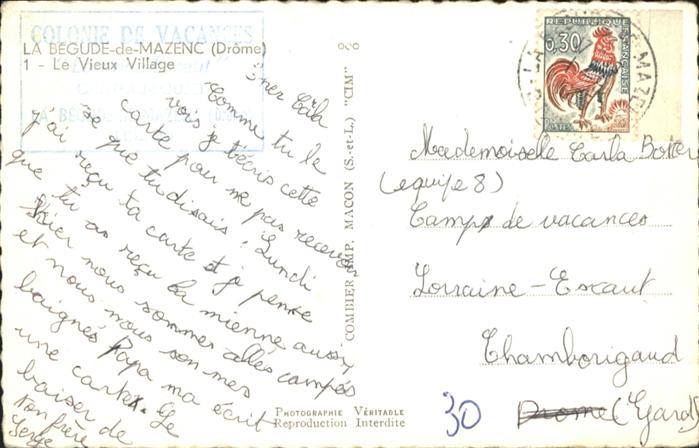 COLONIE DE VACANCES
LA BÉGUDE-de-MAZENC (Drôme)
1 - Le Vieux Village
Comme tu le
vois je t'écris cette
carte pour ne pas recevoir
ce que tu disais. Lundi
j'ai reçu ta carte et je pense
que tu as reçu la mienne aussi,
hier nous sommes allés campés
et nous nous sommes
baignés Papa ma écrit
une carte. Je
baiser de
ton frère
Serge
COMBIER IMP. MACON (S.-et-L.) "CIM"
PHOTOGRAPHIE VÉRITABLE
Reproduction Interdite
REPUBLIQUE
FRANÇAISE
0,30
POSTES
Mademoiselle Carla
(equipe 8)
Camps de vacances
Lorraine-Escaut
Chamborigaud
Drome (Gard)
30